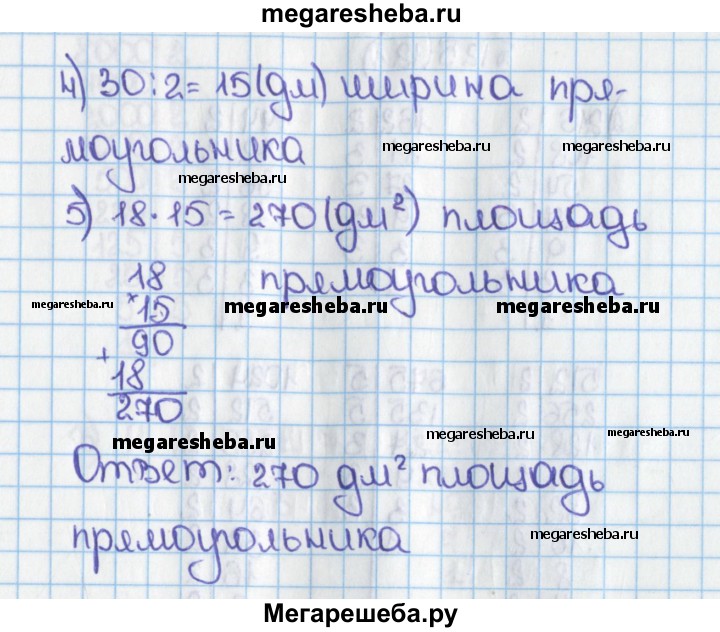 megaresheba.ru
4) 30:2=15(дм) ширина пря-
моугольника megaresheba.ru megaresheba.ru
megaresheba.ru
5) 18·15=270(дм²) площадь
18 прямоугольника
megaresheba.ru ×15 megaresheba.ru megaresheba.ru
90
+
18
270
megaresheba.ru megaresheba.ru megaresheba.ru
Ответ: 270 дм² площадь
прямоугольника megaresheba.ru
Мегарешеба.ру